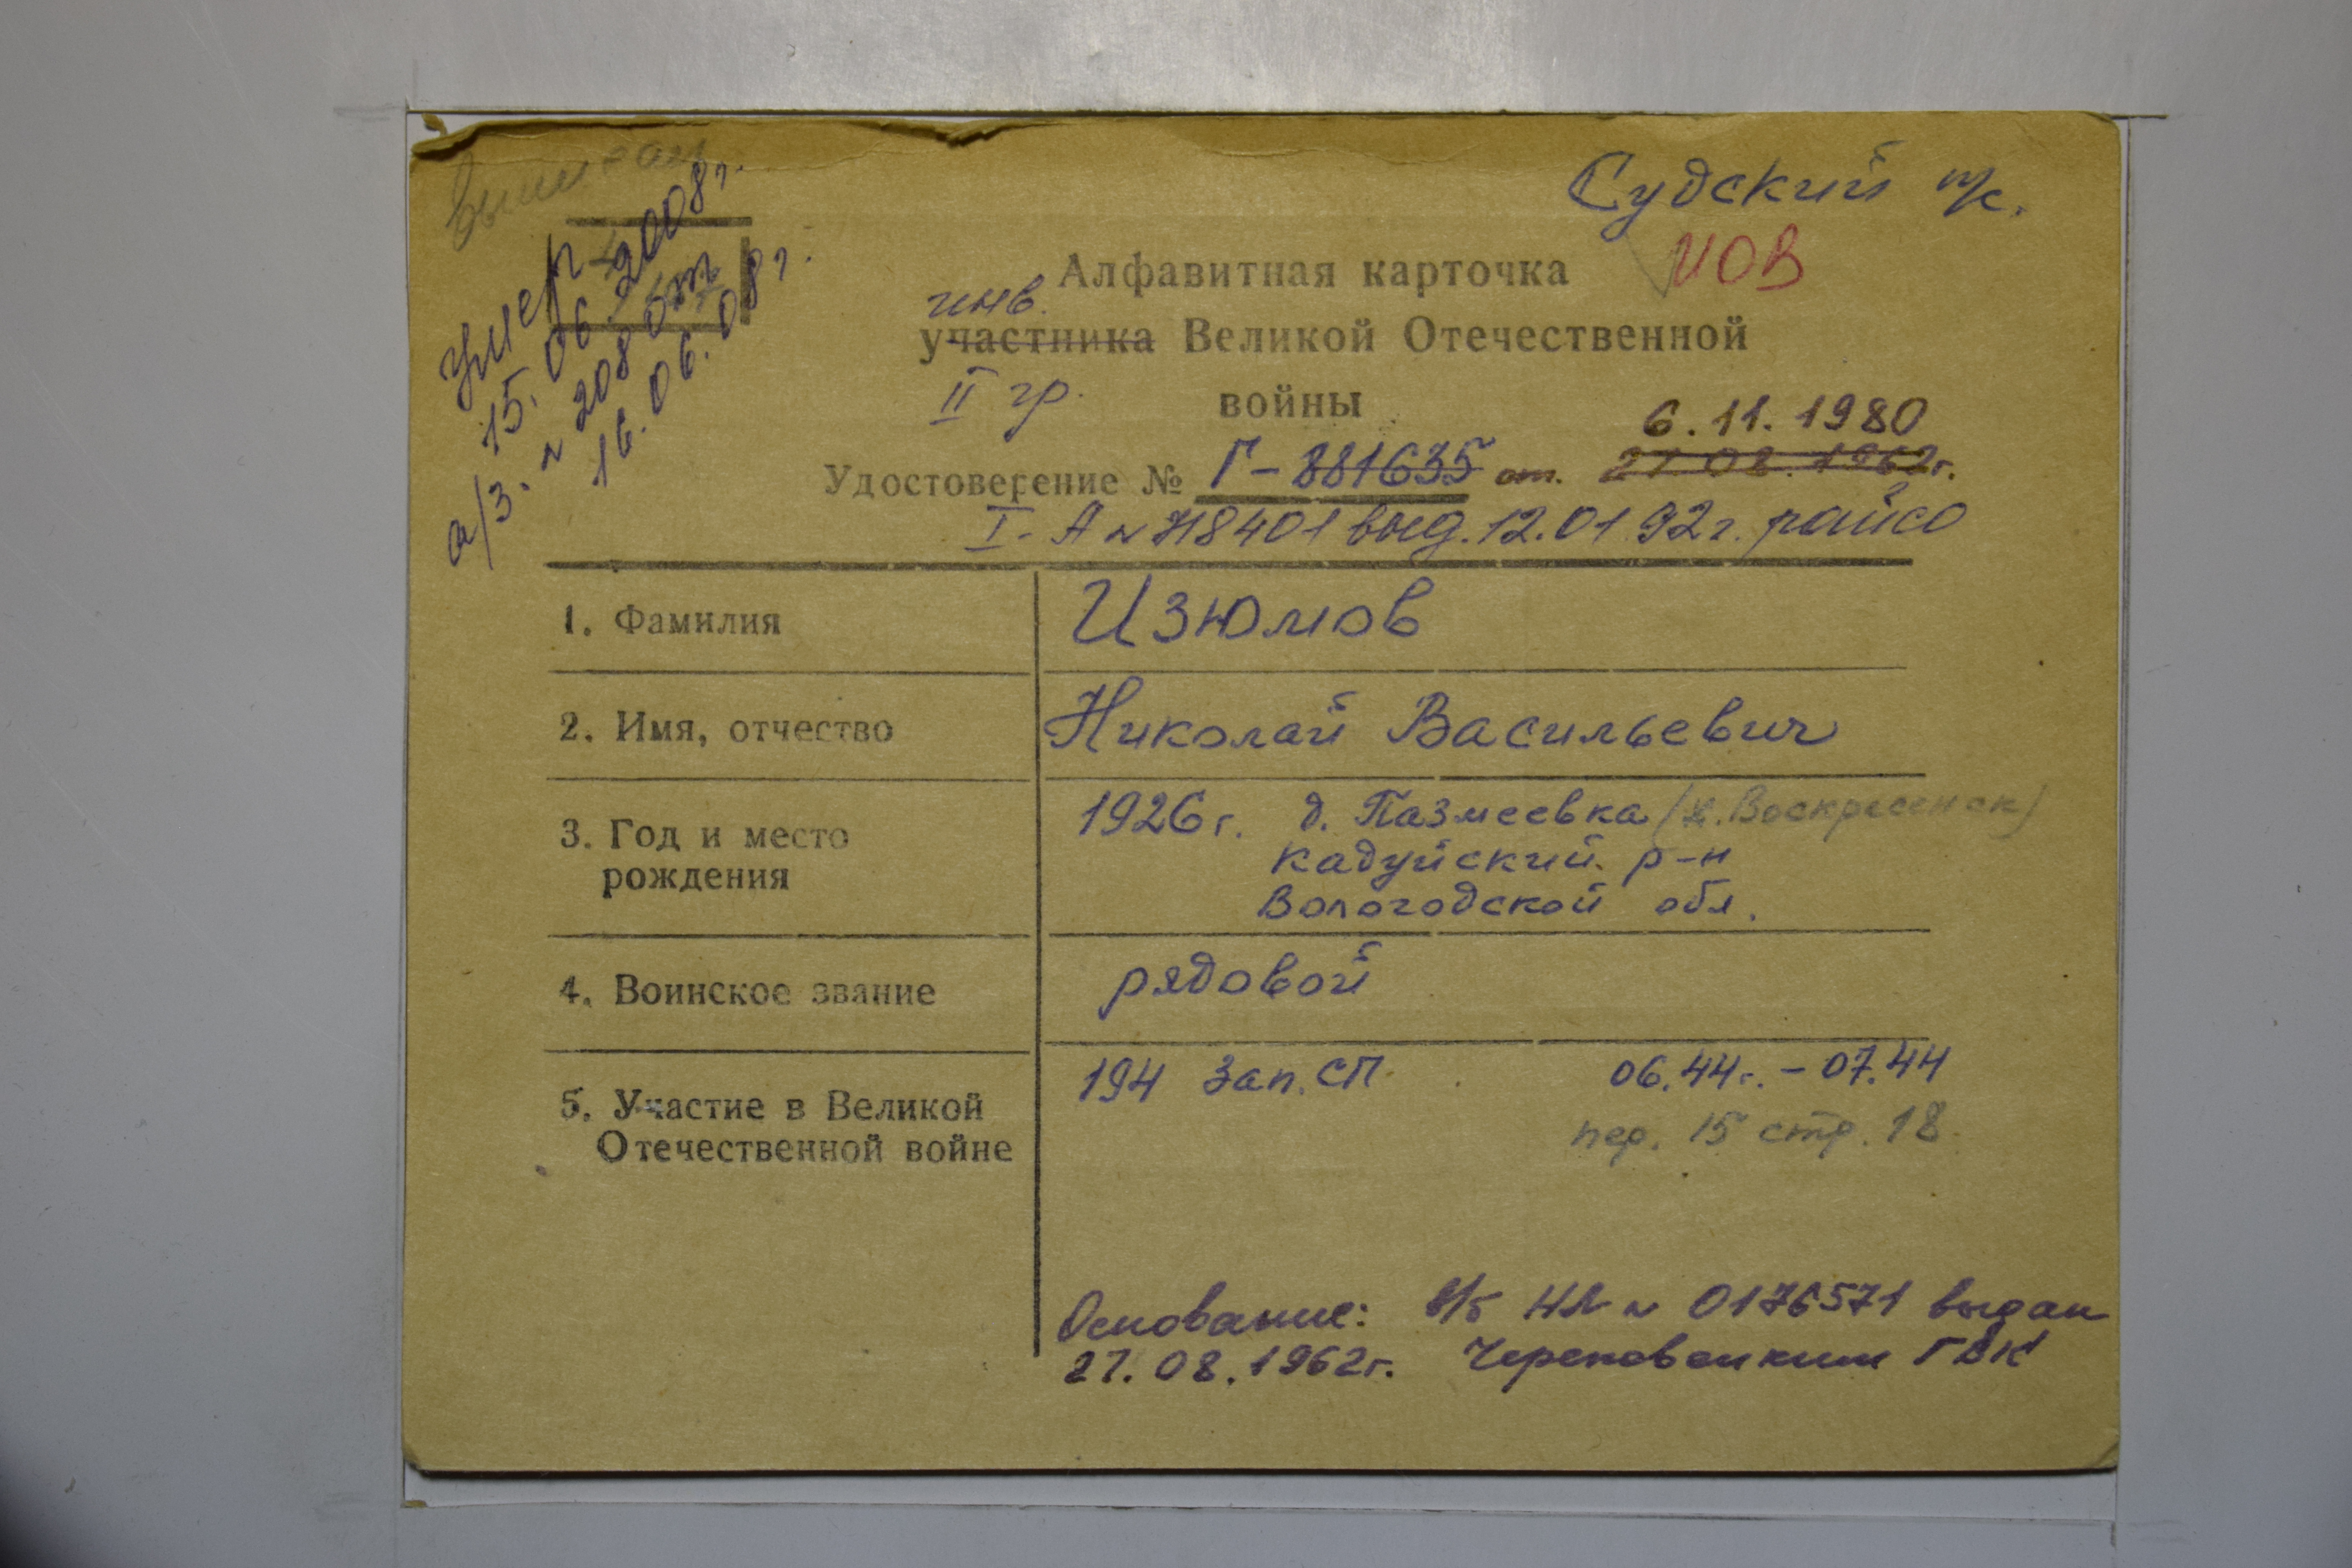 Судский п/с.
ИОВ
умер
15.06.2008г.
а/з. № 208 от
16.06.08г.
Алфавитная карточка
инв.
участника Великой Отечественной
II гр.
войны
6.11.1980
Удостоверение № Г-881635 от. 27.08.1962г.
I-А № 718401 выд. 12.01.92г. райсо
1. Фамилия
Изюмов
2. Имя, отчество
Николай Васильевич
3. Год и место
рождения
1926г. д. Пазмеевка
Кадуйский р-н
Вологодской обл.
4. Воинское звание
рядовой
5. Участие в Великой
Отечественной войне
194 Зап. СП 06.44г. - 07.44
пер. 15 стр. 18
Основание: в/б НЛ № 0176571 выдан
27.08.1962г. Череповецким ГВК